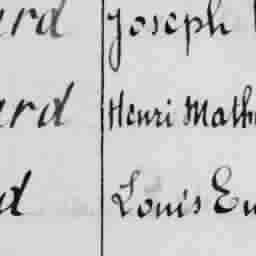 ard Joseph
ard Henri Math
d Louis Eu